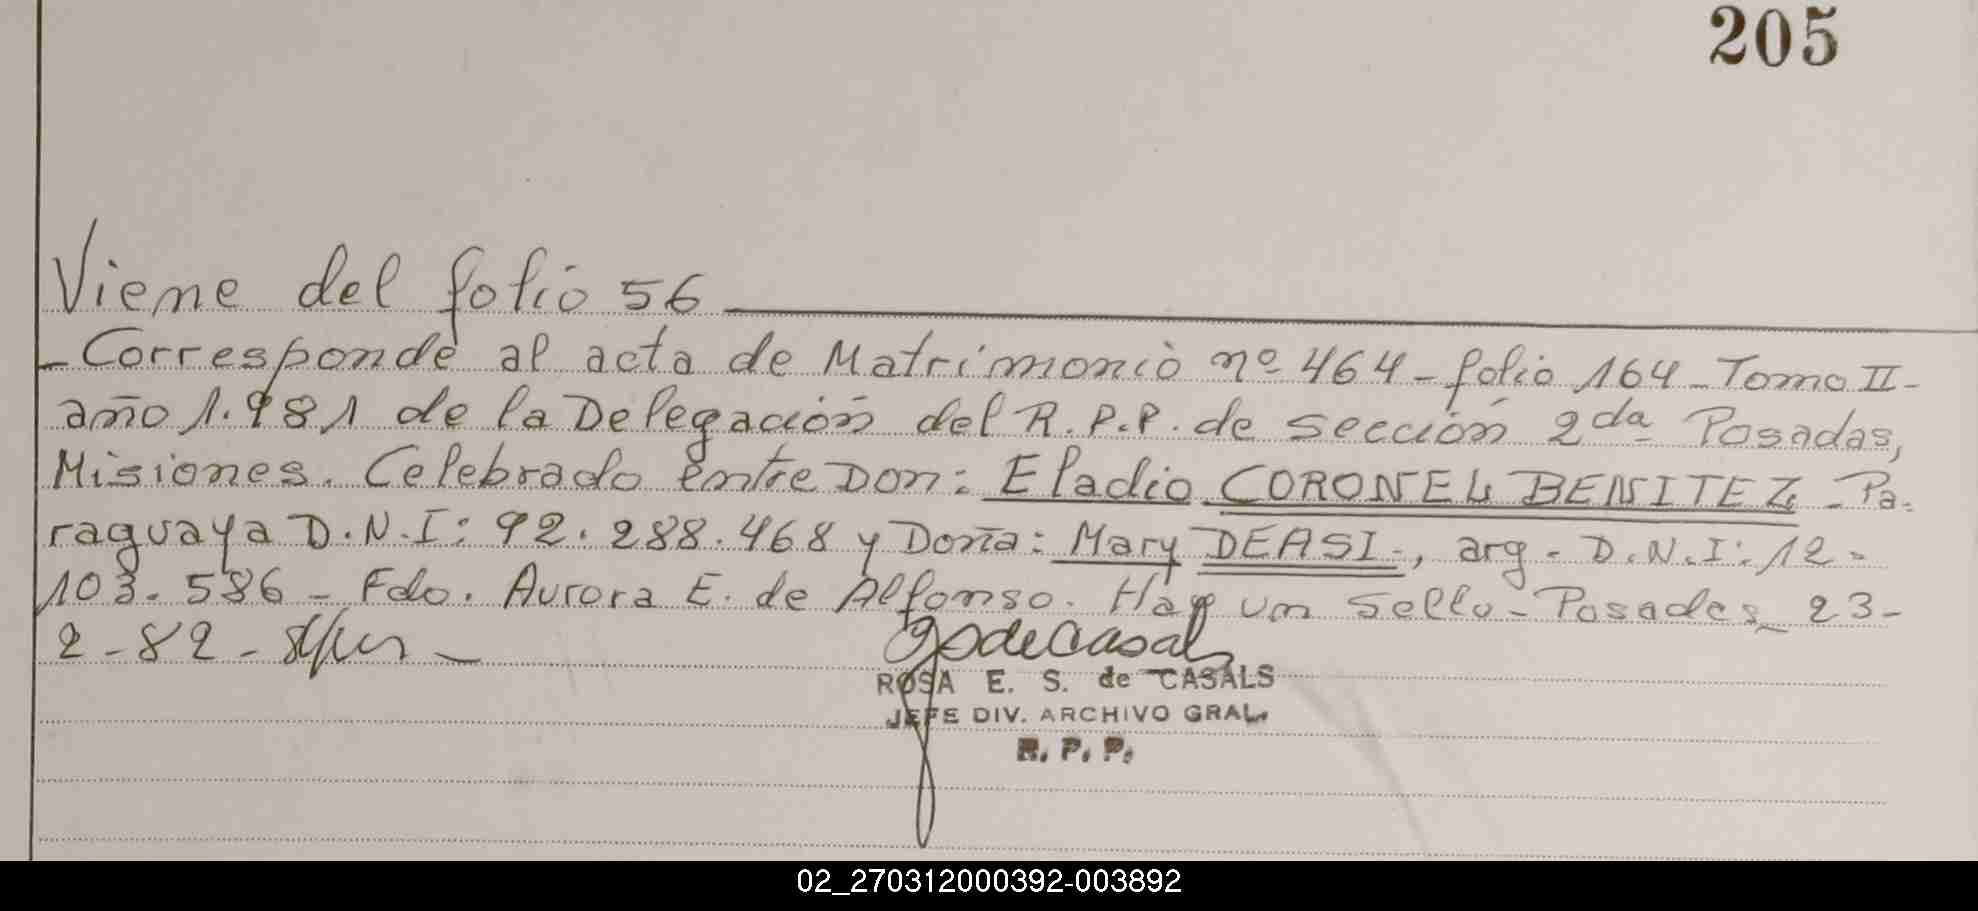 205
Viene del folio 56
- Corresponde al acta de Matrimonio nº 464 - folio 164 - Tomo II -
año 1.981 de la Delegación del R.P.P. de Sección 2da Posadas,
Misiones. Celebrado entre Don: Eladio CORONEL BENITEZ - Pa-
raguaya D.N.I: 92.288.468 y Doña: Mary DEASI -, arg - D.N.I: 12-
103.586 - Fdo. Aurora E. de Alfonso. Hay un Sello - Posadas 23-
2-82 -
ROSA E. S. de CASALS
JEFE DIV. ARCHIVO GRAL.
R. P. P.
02_270312000392-003892